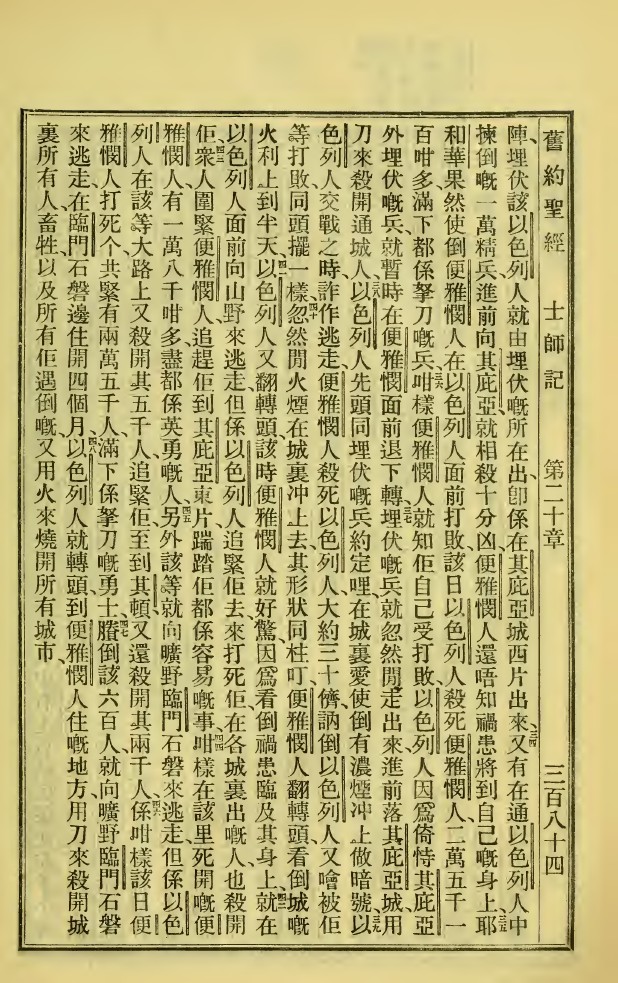 舊約聖經 士師記 第二十章 三百八十四
陣、埋伏該以色列人就由埋伏嘅所在出、卽係在其庇亞城西片出來、三四又有在通以色列人中
揀倒嘅一萬精兵、進前向其庇亞就相殺十分凶、便雅憫人還唔知禍患將到自己嘅身上、三五耶
和華果然使倒便雅憫人在以色列人面前打敗、該日以色列人殺死便雅憫人、二萬五千一
百咁多、滿下都係拏刀嘅兵、三六咁樣便雅憫人就知佢自己受打敗、以色列人因爲倚恃其庇亞
外埋伏嘅兵、就暫時在便雅憫面前退下轉、三七埋伏嘅兵就忽然閒走出來進前落其庇亞城、用
刀來殺開通城人、三八以色列人先頭同埋伏嘅兵約定哩、在城裏愛使倒有濃煙沖上做暗號、三九以
色列人交戰之時、詐作逃走、便雅憫人殺死以色列人、大約三十儕、訥倒以色列人又噲被佢
等打敗、同頭擺一樣、四十忽然閒火煙在城裏沖上去、其形狀同柱叮、便雅憫人翻轉頭、看倒城嘅
火利上到半天、四一以色列人又翻轉頭、該時便雅憫人就好驚、因爲看倒禍患臨及其身上、四二就在
以色列人面前向山野來逃走、但係以色列人追緊佢去來打死佢、在各城裏出嘅人、也殺開
佢、四三衆人圍緊便雅憫人追趕佢、到其庇亞東片踹踏佢、都係容易嘅事、四四咁樣在該里死開嘅便
雅憫人、有一萬八千咁多、盡都係英勇嘅人、四五另外該等、就向曠野臨門石磐來逃走、但係以色
列人在該等大路上、又殺開其五千人、追緊佢至到其頓、又還殺開其兩千人、四六係咁樣該日便
雅憫人打死个、共緊有兩萬五千人、滿下係拏刀嘅勇士、四七賸倒該六百人、就向曠野臨門石磐
來逃走、在臨門石磐邊住開四個月、四八以色列人就轉頭、到便雅憫人住嘅地方、用刀來殺開城
裏所有人、畜牲、以及所有佢遇倒嘅、又用火來燒開所有城市、